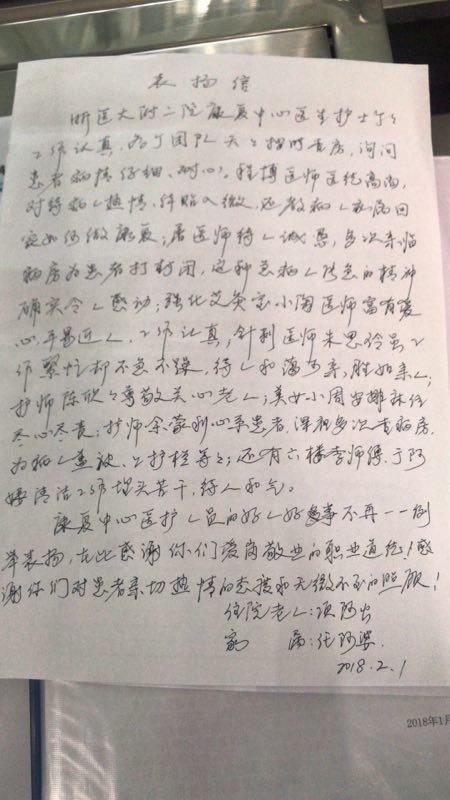 表扬信
浙医大附二院康复中心医生护士个个
工作认真,各个团队天天按时查房,询问
患者病情仔细、耐心。程博医师医德高尚,
对待病人热情,体贴入微,还教病人出院回
家如何做康复;屠医师待人诚恳,多次亲临
病房为患者打封闭,这种急病人所急的精神
确实令人感动;强化艾灸室小陶医师富有爱
心平易近人,工作认真;针刺医师朱思玲虽工
作繁忙却不急不躁,待人和蔼可亲,胜如亲人;
护师陈欣欣尊敬关心老人;美女小周安排床位
尽心尽责;护师余蒙利心系患者,深夜多次查病房,
为病人盖被、上护栏等等;还有六楼李师傅、于阿
姨清洁工作埋头苦干,待人和气。
康复中心医护人员的好人好事不再一一例
举表扬,在此感谢你们爱岗敬业的职业道德!感
谢你们对患者亲切热情的态度和无微不至的照顾!
住院老人:项阿
家属:任阿婆
2018.2.1
2018年1月